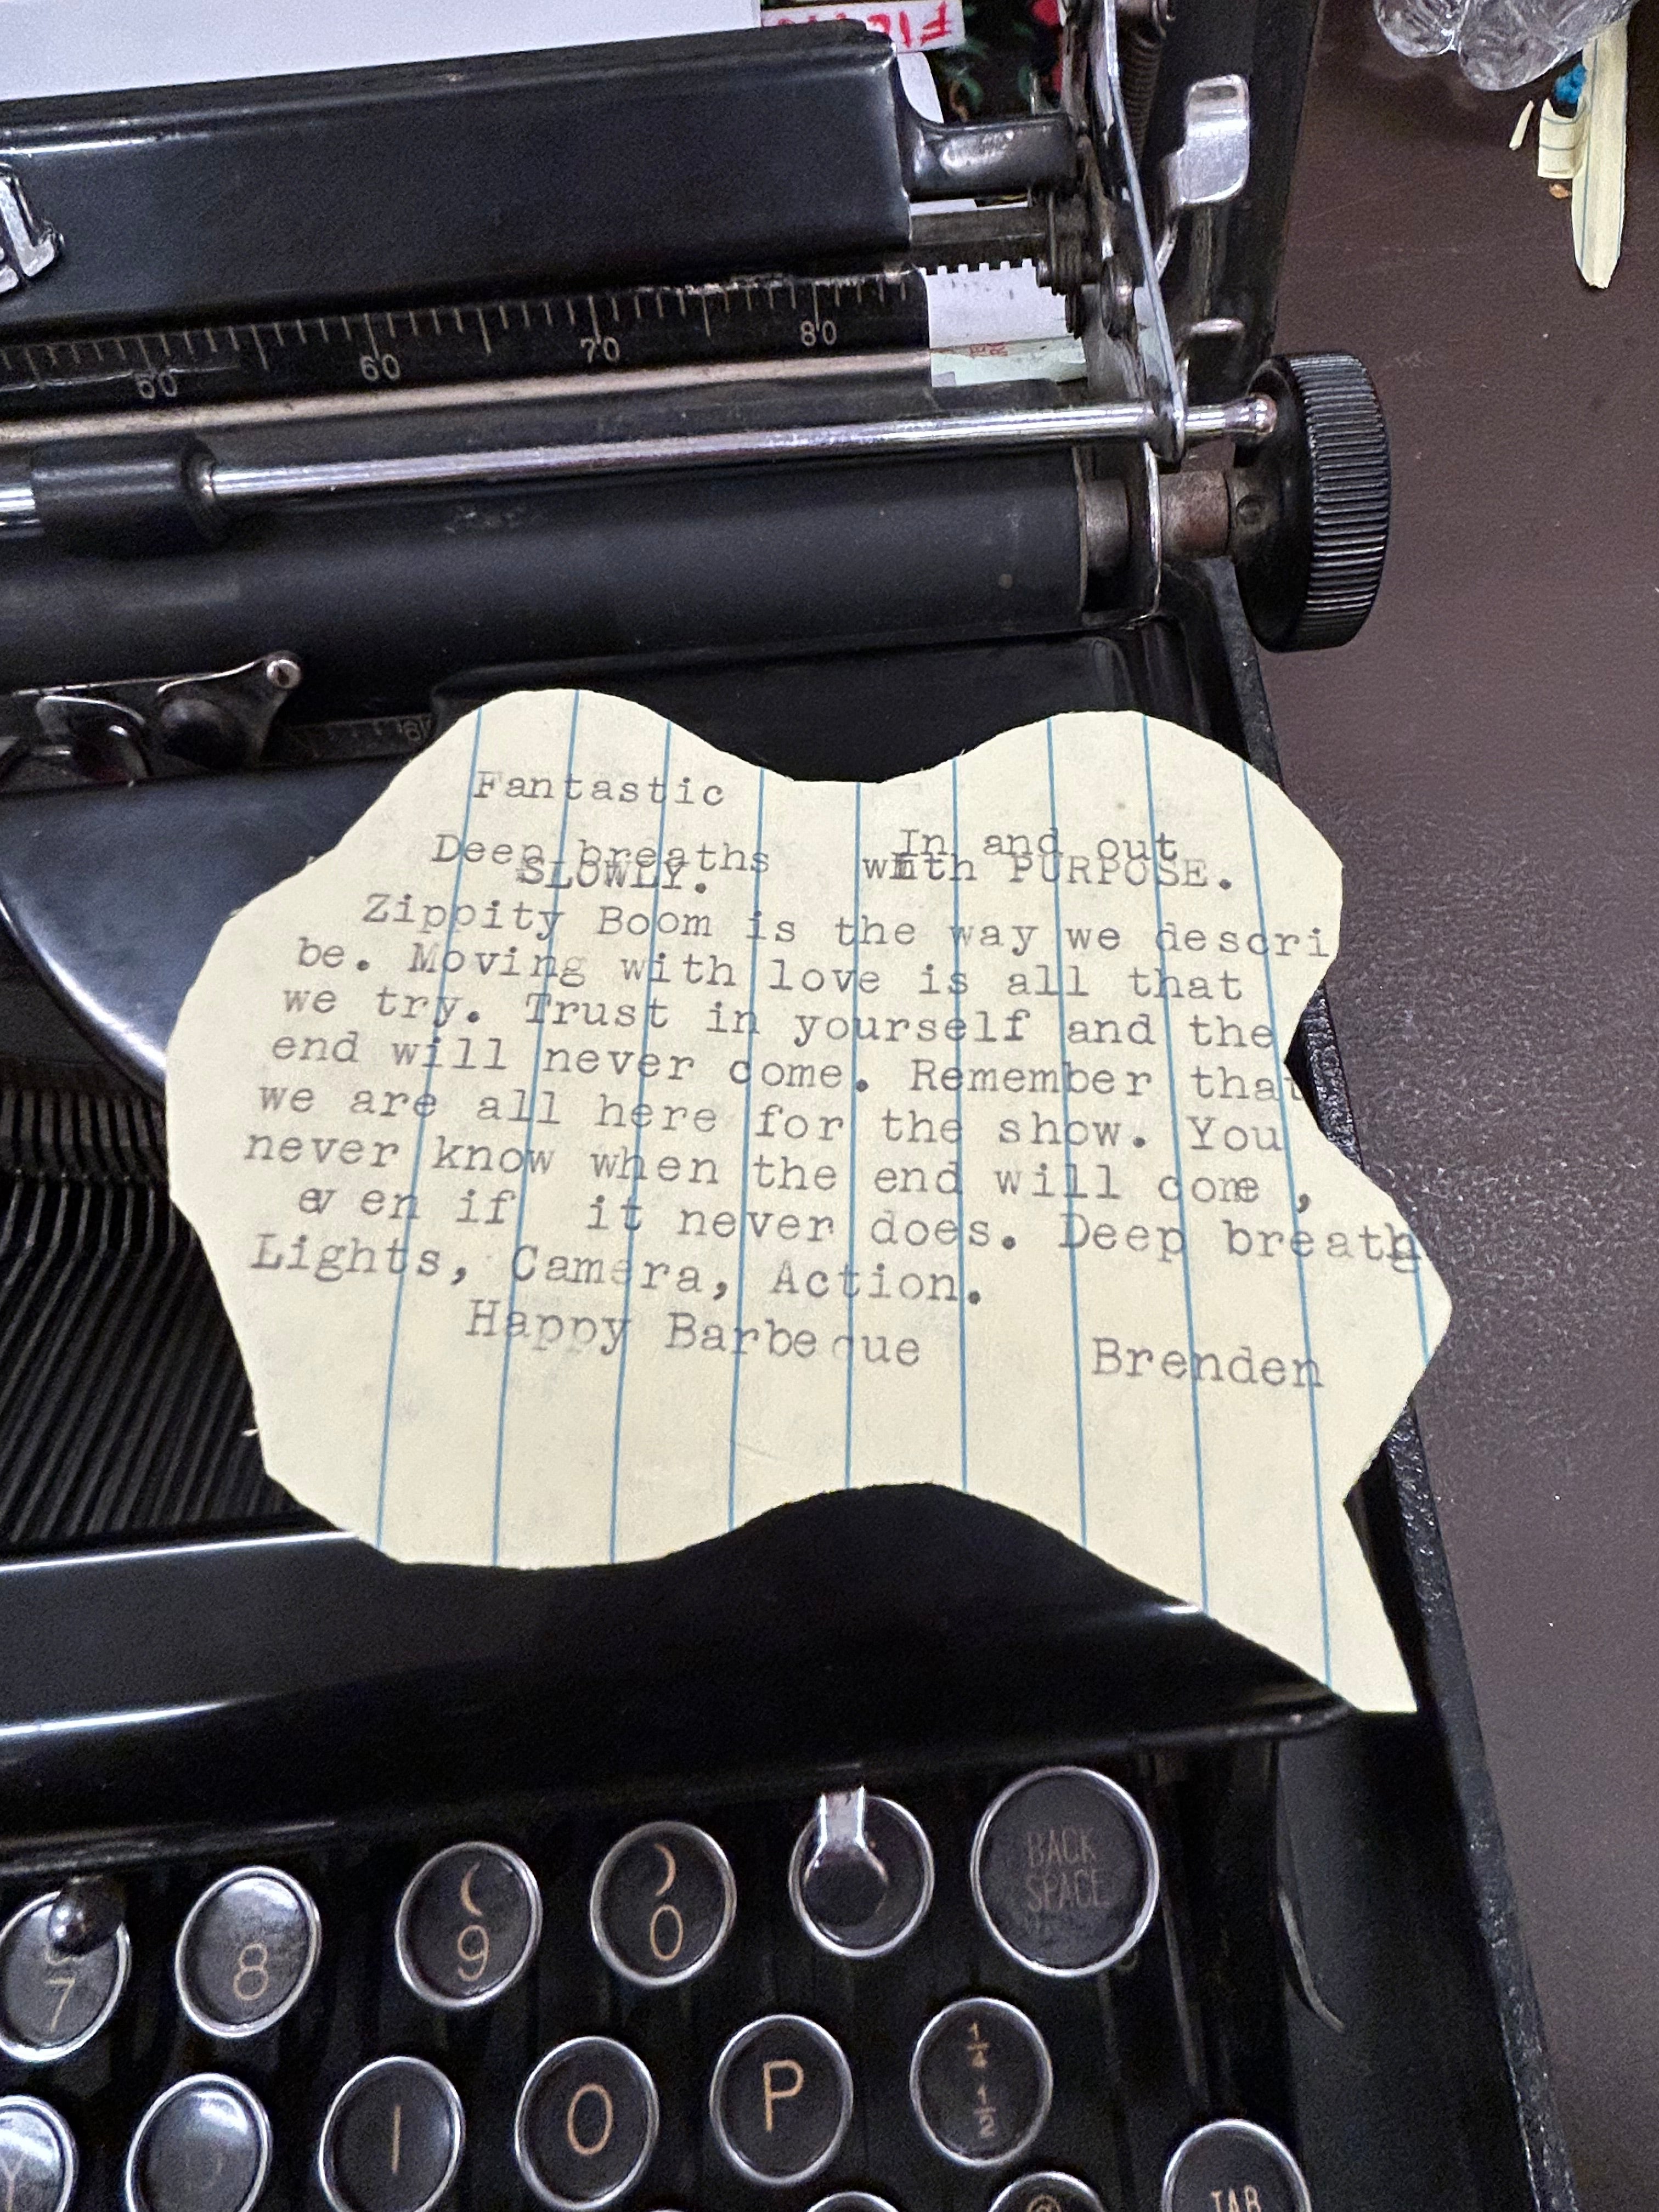 50 60 70 80
Fantastic
Deep breaths In and out
SLOWLY. with PURPOSE.
Zippity Boom is the way we descri
be. Moving with love is all that
we try. Trust in yourself and the
end will never come. Remember that
we are all here for the show. You
never know when the end will come ,
ev en if it never does. Deep breath
Lights, Camera, Action.
Happy Barbeque Brenden
7 8 ( 9 ) 0 BACK SPACE
Y I O P 1/4 1/2
TAB